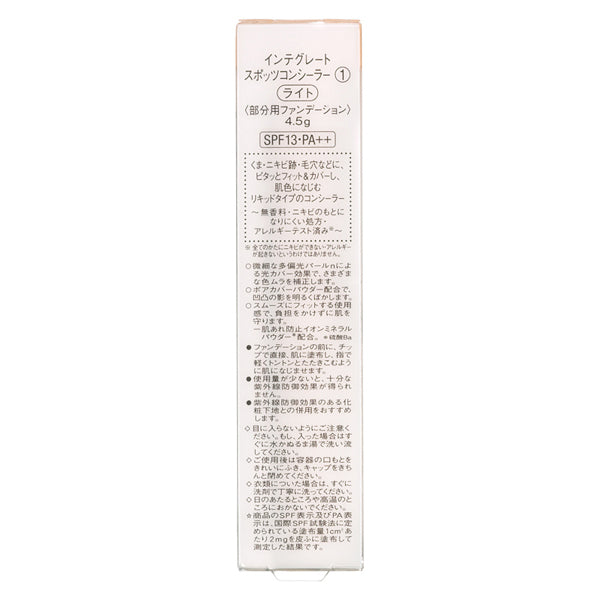 インテグレート
スポッツコンシーラー ①
ライト
〈部分用ファンデーション〉
4.5g
SPF13・PA++
くま・ニキビ跡・毛穴などに、
ピタッとフィット&カバーし、
肌色になじむ
リキッドタイプのコンシーラー
～無香料・ニキビのもとに
なりにくい処方・
アレルギーテスト済み※～
※全てのかたにニキビができない・アレルギー
が起きないというわけではありません。
○微細な多偏光パールnによ
る光カバー効果で、さまざま
な色ムラを補正します。
○ポアカバーパウダー配合で、
凹凸の影を明るくぼかします。
○スムーズにフィットする使用
感で、負担をかけずに肌を
守ります。
―肌あれ防止イオンミネラル
パウダー*配合。 *硫酸Ba
●ファンデーションの前に、チッ
プで直接、肌に塗布し、指で
軽くトントンとたたきこむよう
に肌になじませます。
●使用量が少ないと、十分な
紫外線防御効果が得られ
ません。
●紫外線防御効果のある化
粧下地との併用をおすすめ
します。
◇目に入らないようにご注意く
ださい。もし、入った場合はす
ぐに水かぬるま湯で洗い流
してください。
◇ご使用後は容器の口もとを
きれいにふき、キャップをきち
んと閉めてください。
◇衣類についた場合は、すぐに
洗剤で丁寧に洗ってください。
◇日のあたるところや高温のと
ころにおかないでください。
☆商品のSPF表示及びPA表
示は、国際SPF試験法に定
められている塗布量1cm²あ
たり2mgを皮ふに塗布して
測定した結果です。